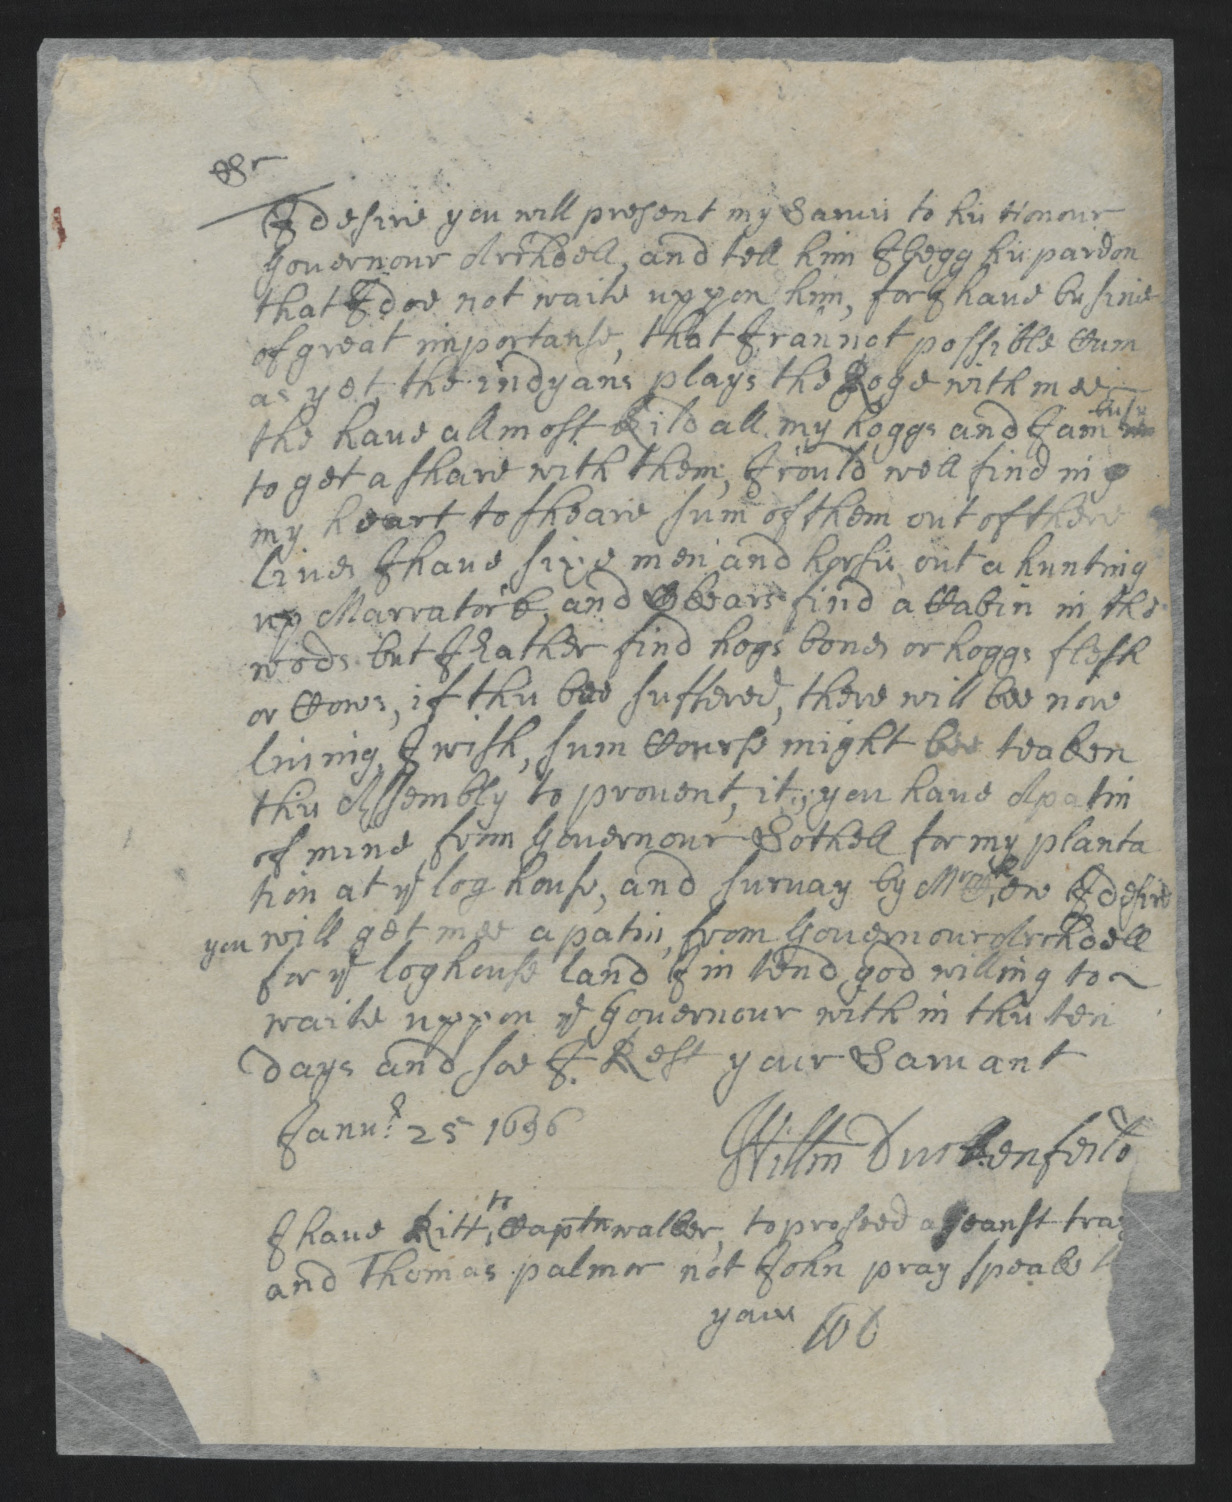 Sr
I desire you will present my Saruis to his Honour
Gouernour Archdell, and tell him I begg his pardon
that I doe not waite uppon him, for I haue busines
of great importanse, that I cannot possible Cum
as yet, the indyans plays the Roge with mee
the haue allmost kild all my hoggs and I am busy
to get a share with them, I could well find in
my heart to sheare sum of them out of there
liues I haue sixe men and horsis out a hunting
up Marratock, and
wods but I Rather find hogs bones or hoggs flesh
or Cows, if this bee suffered, there will bee noe
liuing, I wish, sum Course might bee teaken
this Assembly to prouent, it, you haue A patin
of mine from Gouernour Sothell for my planta
tion at ye log house, and suruay by Mr I desire
you will get mee a patin, from Gouernour Archdell
for ye loghouse land I in tend god willing to
waite uppon ye Gouernour with in this ten
days and soe I Rest your Saruant
Janu: 25 1696
Willm Duckenfeild
I haue Ritt to Captn walker, to proseed ageanst
and Thomas palmer not John pray speake
yours WD